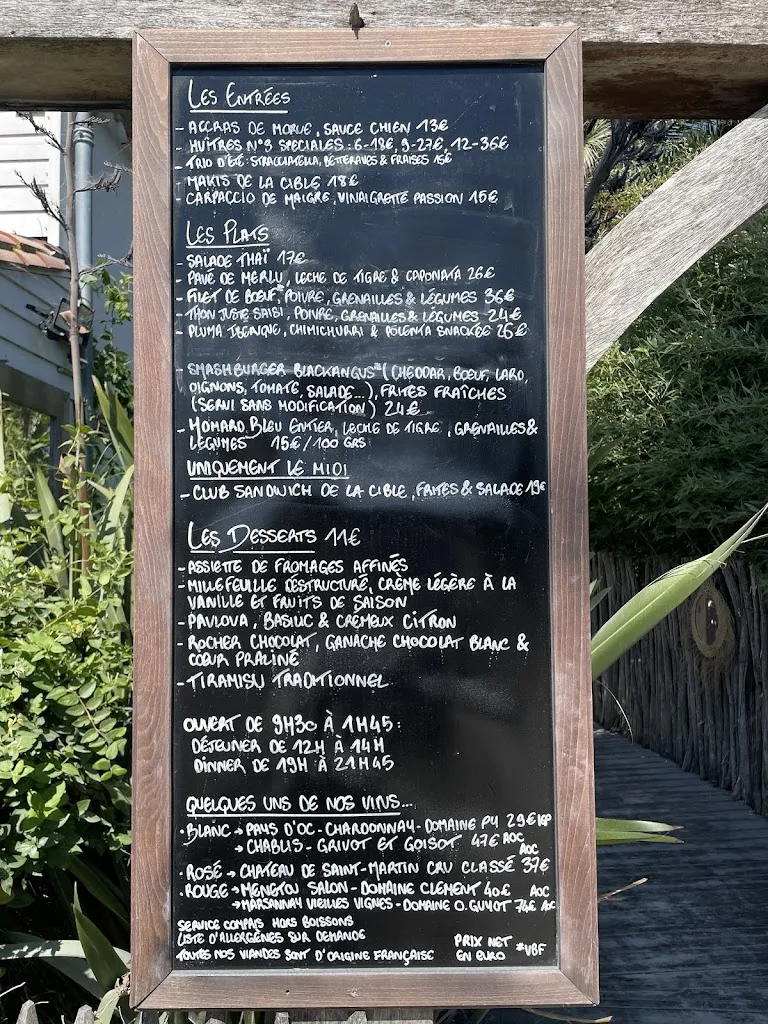 LES ENTRÉES
- ACCRAS DE MORUE, SAUCE CHIEN 13€
- HUÎTRES N°3 SPÉCIALES : 6-18€, 9-27€, 12-36€
- TRIO D'ÉTÉ : STRACCIATELLA, BETTERAVES & FRAISES 15€
- MAKIS DE LA CIBLE 18€
- CARPACCIO DE MAIGRE, VINAIGRETTE PASSION 15€
LES PLATS
- SALADE THAÏ 17€
- PAVÉ DE MERLU, LECHE DE TIGRE & CAPONATA 26€
- FILET DE BŒUF*, POIVRE, GRENAILLES & LÉGUMES 36€
- THON JUSTE SAISI, POIVRE, GRENAILLES & LÉGUMES 24€
- PLUMA IBÉRIQUE, CHIMICHURRI & POLENTA SNACKÉE 26€
- SMASHBURGER BLACKANGUS* (CHEDDAR, BŒUF, LARD,
OIGNONS, TOMATE, SALADE...), FRITES FRAÎCHES
(SERVI SANS MODIFICATION) 24€
- HOMARD BLEU ENTIER, LECHE DE TIGRE, GRENAILLES &
LÉGUMES 15€/100 GRS
UNIQUEMENT LE MIDI
- CLUB SANDWICH DE LA CIBLE, FRITES & SALADE 19€
LES DESSERTS 11€
- ASSIETTE DE FROMAGES AFFINÉS
- MILLEFEUILLE DESTRUCTURÉ, CRÈME LÉGÈRE À LA
VANILLE ET FRUITS DE SAISON
- PAVLOVA, BASILIC & CRÉMEUX CITRON
- ROCHER CHOCOLAT, GANACHE CHOCOLAT BLANC &
CŒUR PRALINÉ
- TIRAMISU TRADITIONNEL
OUVERT DE 9H30 À 1H45 :
DÉJEUNER DE 12H À 14H
DINNER DE 19H À 21H45
QUELQUES UNS DE NOS VINS...
· BLANC → PAYS D'OC - CHARDONNAY - DOMAINE PY 29€ IGP
→ CHABLIS - GRIVOT ET GOISOT 47€ AOC
AOC
· ROSÉ → CHATEAU DE SAINT-MARTIN CRU CLASSÉ 37€
· ROUGE → MENETOU SALON - DOMAINE CLEMENT 40€ AOC
→ MARSANNAY VIEILLES VIGNES - DOMAINE O.GUYOT 74€ AOC
SERVICE COMPRIS HORS BOISSONS
LISTE D'ALLERGÈNES SUR DEMANDE
TOUTES NOS VIANDES SONT D'ORIGINE FRANÇAISE
PRIX NET *VBF
EN EURO